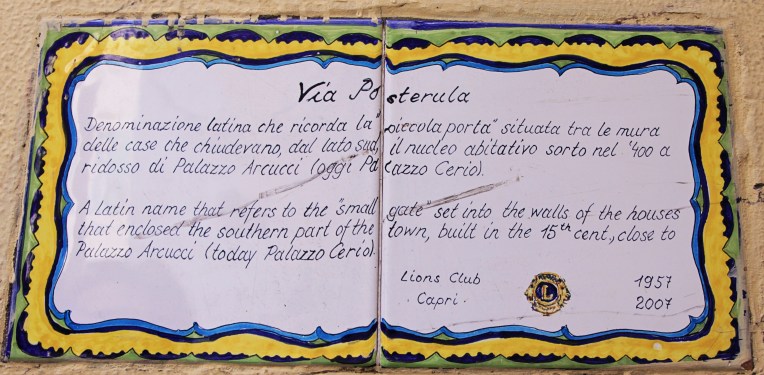 Via Posterula
Denominazione latina che ricorda la "piccola porta" situata tra le mura
delle case che chiudevano, dal lato sud, il nucleo abitativo sorto nel '400 a
ridosso di Palazzo Arcucci (oggi Palazzo Cerio).
A Latin name that refers to the "small gate" set into the walls of the houses
that enclosed the southern part of the town, built in the 15th cent., close to
Palazzo Arcucci (today Palazzo Cerio).
Lions Club 1957
Capri 2007
L